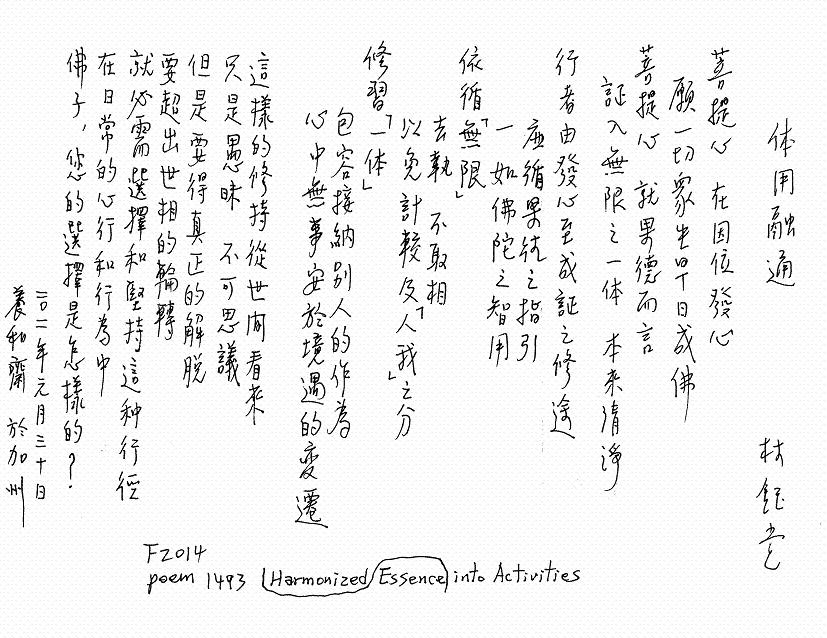 体用融通
林鈺堂
菩提心 在因位發心
願一切衆生早日成佛
菩提心 就果德而言
証入無限之一体 本来清淨
行者由發心至成証之修途
應循果德之指引
一如佛陀之智用
依循「無限」
去執 不取相
以免計較及「人我」之分
修習「一体」
包容接納別人的作為
心中無事安於境遇的変遷
這樣的修持從世間看來
只是愚昧 不可思議
但是要得真正的解脫
要超出世相的輪轉
就必需選擇和堅持這种行徑
在日常的心行和行為中
佛子，您的選擇是怎樣的？
二〇二一年元月三十日
養和齋 於加州
F2014
poem 1493 Harmonized Essence into Activities